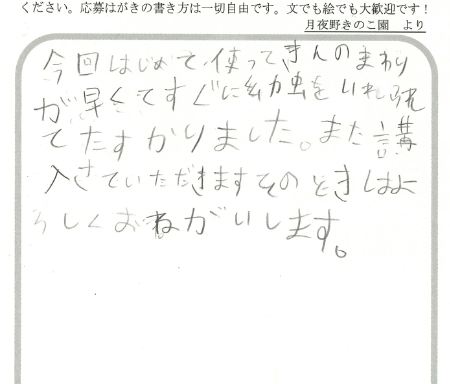 ください。応募はがきの書き方は一切自由です。文でも絵でも大歓迎です！
月夜野きのこ園　より
今回はじめて使ってきんのまわり
が早くてすぐに幼虫をいれられ
てたすかりました。また講
入させていただきますそのときはよ
ろしくおねがいします。